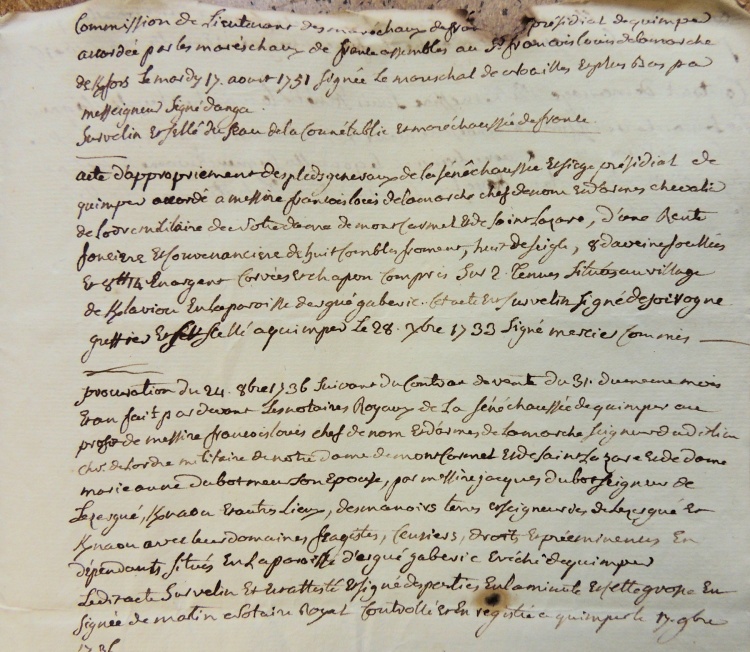 Commission de Lieutenant des maréchaux de présidial de quimper
accordée par les maréschaux de france assemblés au Sr francois louis delamarche
de Kfors Le mardy 17. aout 1751 Signée Le mareschal de et plus Bas par
messeigneur Signé
Sur velin et sellé du seau de la Connétablie et maréchaussée de france
acte d'appropriement des pleds generaux de la sénéchaussée et siege présidial de
quimper accordé a messire francois louis delamarche chef de nom et d'armes chevalier
de l'odre militaire de notre dame de mont Carmel et de saint Lazare, d'une Rente
fonciere et Convenanciere de huit Combles froment, huit de seigle, 8 d'aveine foullées
et 8tt en argent Corvées et chapon Compris Sur 2 Tenues Situées au village
de Klaviou En la paroisse d'ergué gaberic. Cet acte est Sur velin Signé de
greffier et Scellé a quimper Le 28. 7bre 1733 Signé mercier Commis
procuration du 24. 8bre 1736 Suivant du Contrat de vente du 31. du meme mois
et an fait par devant Les notaires Royaux de La sénéchaussée de quimper au
profit de messire francois louis chef de nom et d'armes de Lamarche Seigneur dudit lieu
chr. de Lordre militaire de notre dame de mont Carmel et de Saint Lazare et de dame
marie anne du bot meu Son Epouse, par messire jacques du bot Seigneur de
Lezergué, Knaou et autres Lieux, des manoirs terres et seigneuries de Lezergué et
Knaou avec leurs domaines, Censiers, droits et prééminences En
dépendants Situés En La paroisse d'ergué gaberic Evéché de quimper
Ledit acte Sur velin Et attesté et Signé des parties En la minute et cette grosse En
Signée de malin notaire Royal Controllé et En registré a quimper le 17. 9bre
1736